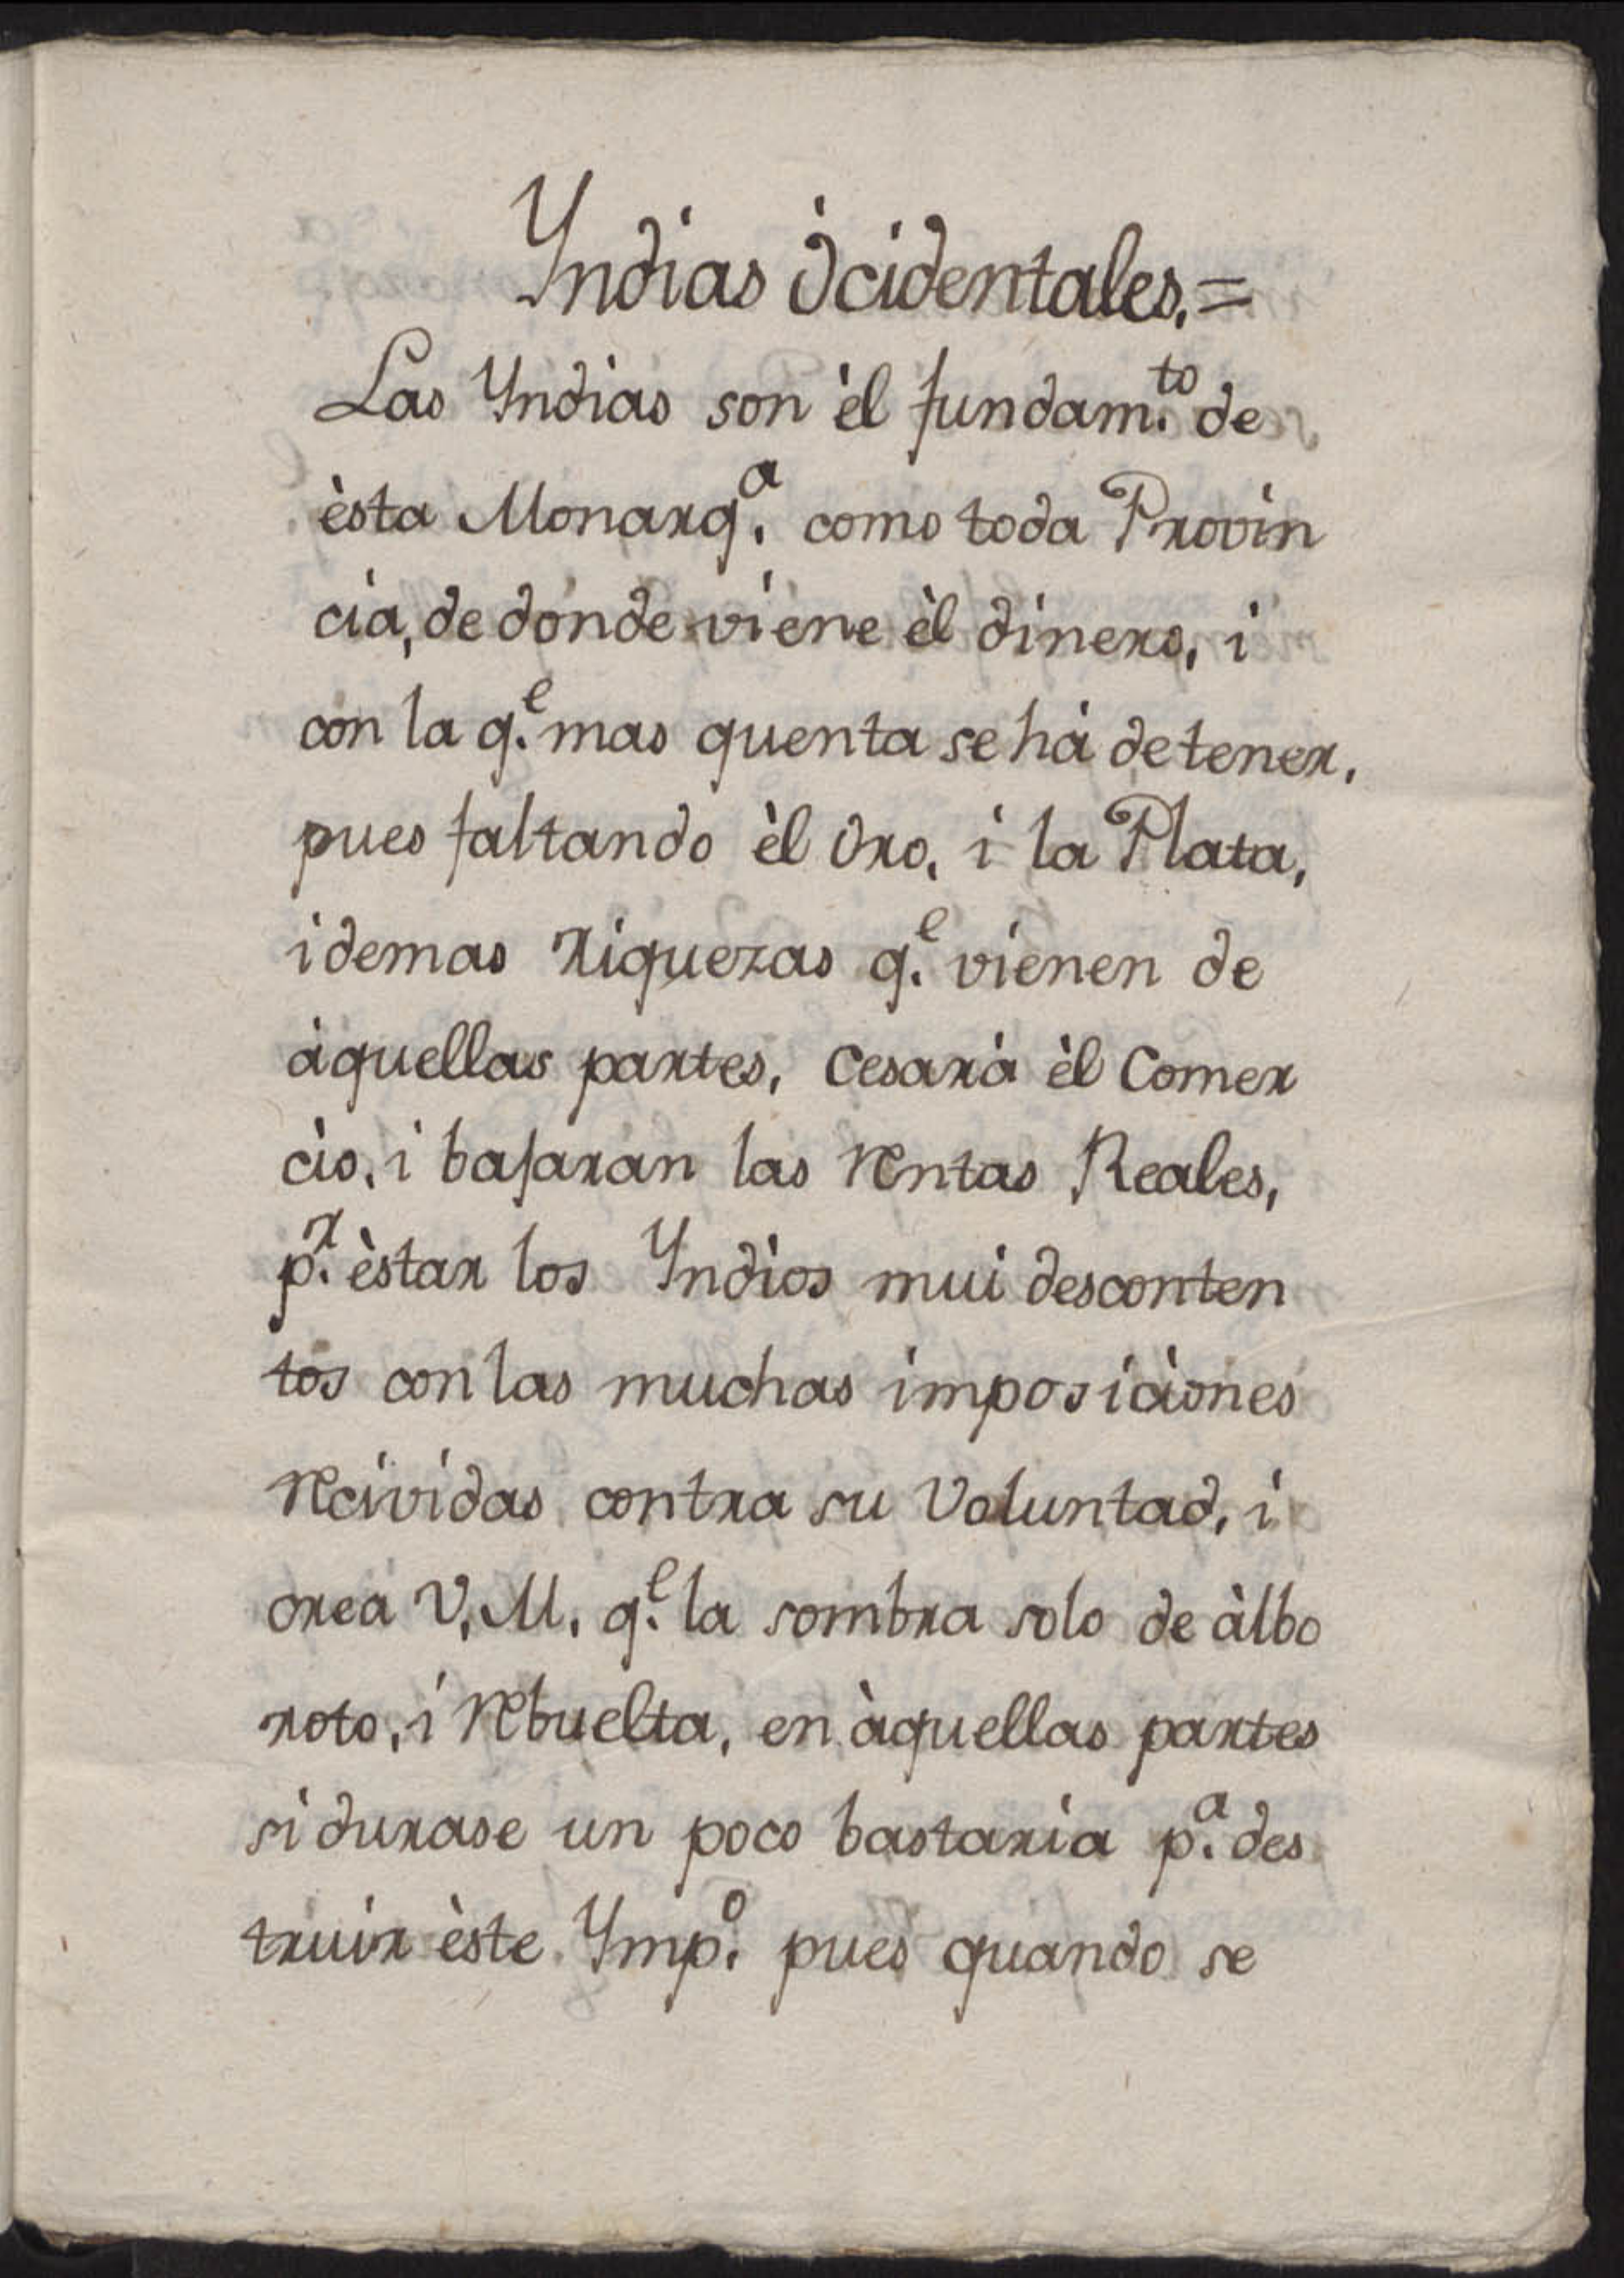 Yndias òcidentales.=
Las Yndias son èl fundam.to de
èsta Monarq.a como toda Provin
cia, de donde viene èl dinero, i
con la q.e mas quenta se hà de tener,
pues faltando èl Oro, i la Plata,
i demas riquezas q.e vienen de
àquellas partes, cesarà èl Comer
cio, i bajaran las rentas Reales,
p.r èstar los Yndios mui desconten
tos con las muchas imposiciones
recividas contra su Voluntad, i
crea V.M. q.e la sombra solo de àlbo
roto, i rebuelta, en àquellas partes
si durase un poco bastaria p.a des
truir èste Ymp.o pues quando se